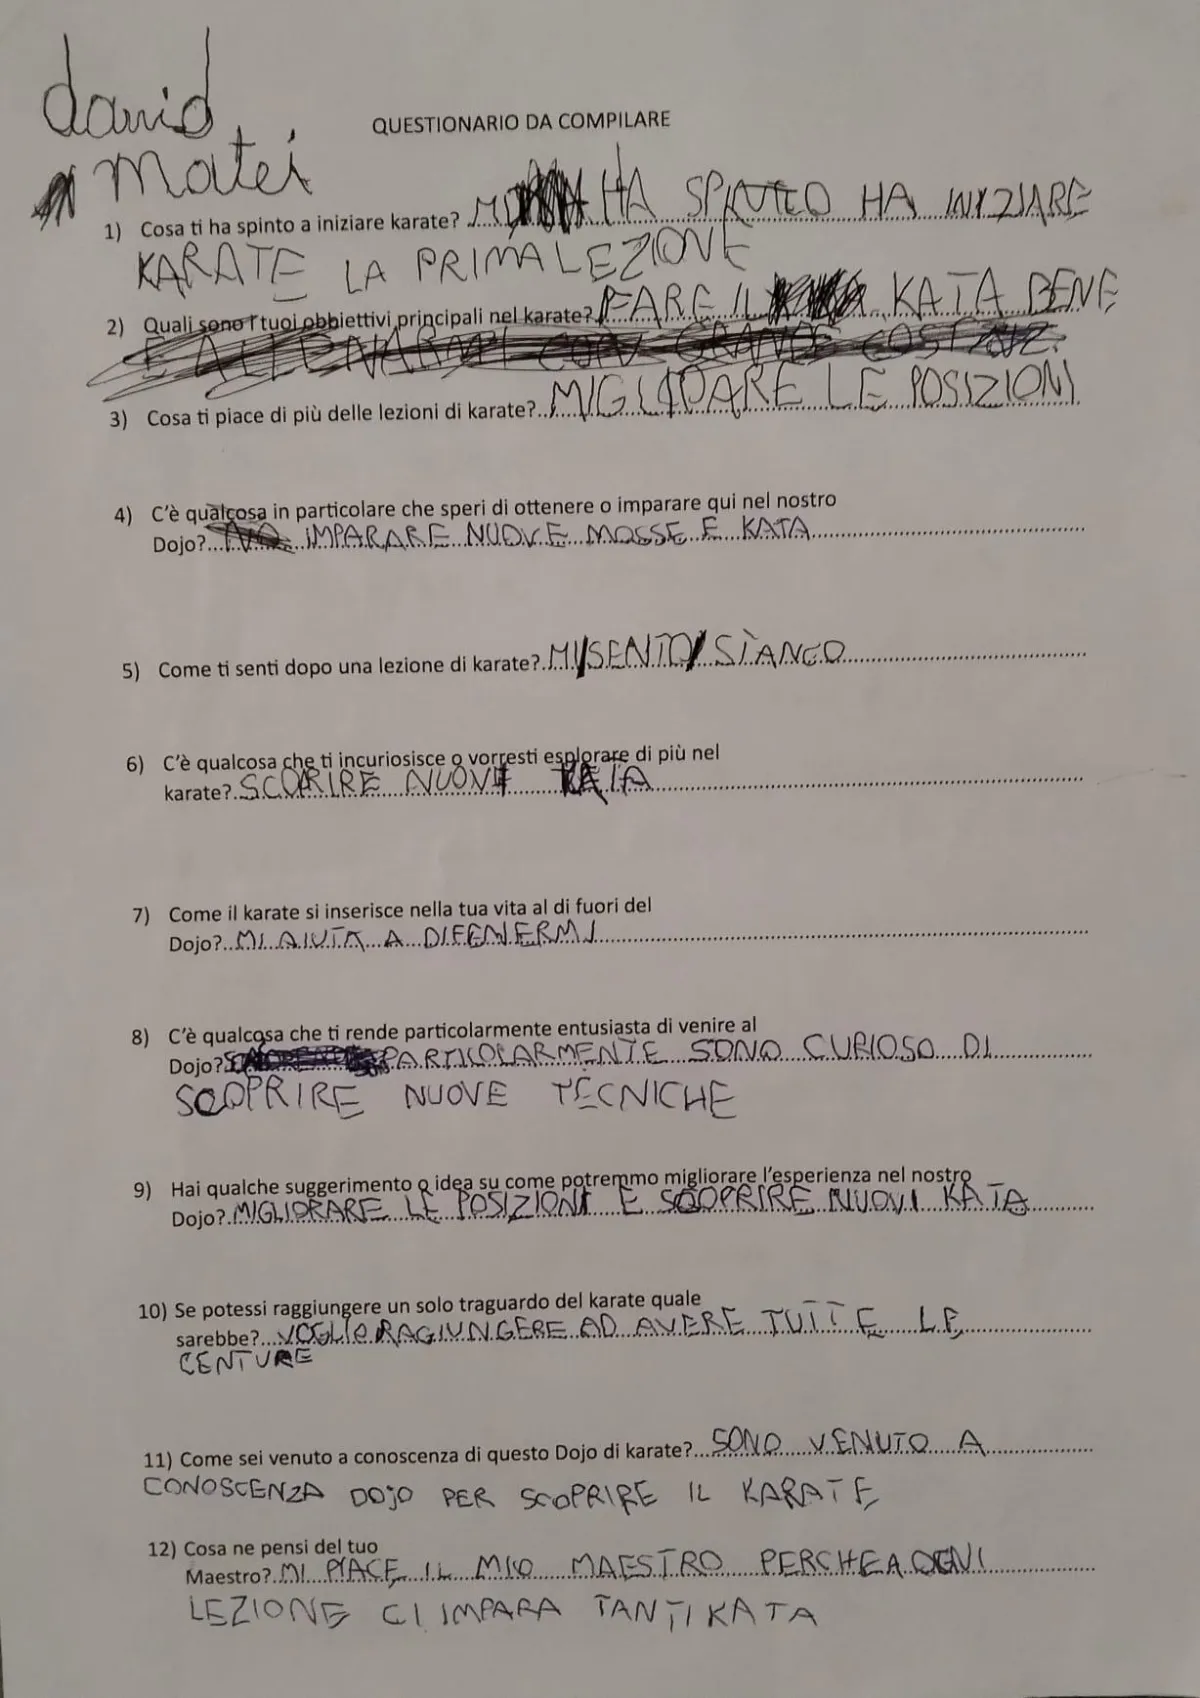 david
matei
QUESTIONARIO DA COMPILARE
1) Cosa ti ha spinto a iniziare karate? MI HA SPINTO HA INIZIARE
KARATE LA PRIMA LEZIONE
2) Quali sono I tuoi obbiettivi principali nel karate? FARE IL KATA BENE
E ALLENARMI CON GRANDE
3) Cosa ti piace di più delle lezioni di karate? MIGLIOARE LE POSIZIONI
4) C'è qualcosa in particolare che speri di ottenere o imparare qui nel nostro
Dojo? NO IMPARARE NUOVE MOSSE E KATA
5) Come ti senti dopo una lezione di karate? MI SENTO STANCO
6) C'è qualcosa che ti incuriosisce o vorresti esplorare di più nel
karate? SCORIRE NUOVI KATA
7) Come il karate si inserisce nella tua vita al di fuori del
Dojo? MI AIUTA A DIFENERMI
8) C'è qualcosa che ti rende particolarmente entusiasta di venire al
Dojo? PARTICOLARMENTE SONO CURIOSO DI
SCOPRIRE NUOVE TECNICHE
9) Hai qualche suggerimento o idea su come potremmo migliorare l'esperienza nel nostro
Dojo? MIGLIORARE LE POSIZIONI E SCOPRIRE NUOVI KATA
10) Se potessi raggiungere un solo traguardo del karate quale
sarebbe? VOGLIO RAGIUNGERE AD AVERE TUTTE LE
CENTURE
11) Come sei venuto a conoscenza di questo Dojo di karate? SONO VENUTO A
CONOSCENZA DOJO PER SCOPRIRE IL KARATE
12) Cosa ne pensi del tuo
Maestro? MI PIACE IL MIO MAESTRO PERCHE A OGNI
LEZIONE CI IMPARA TANTI KATA